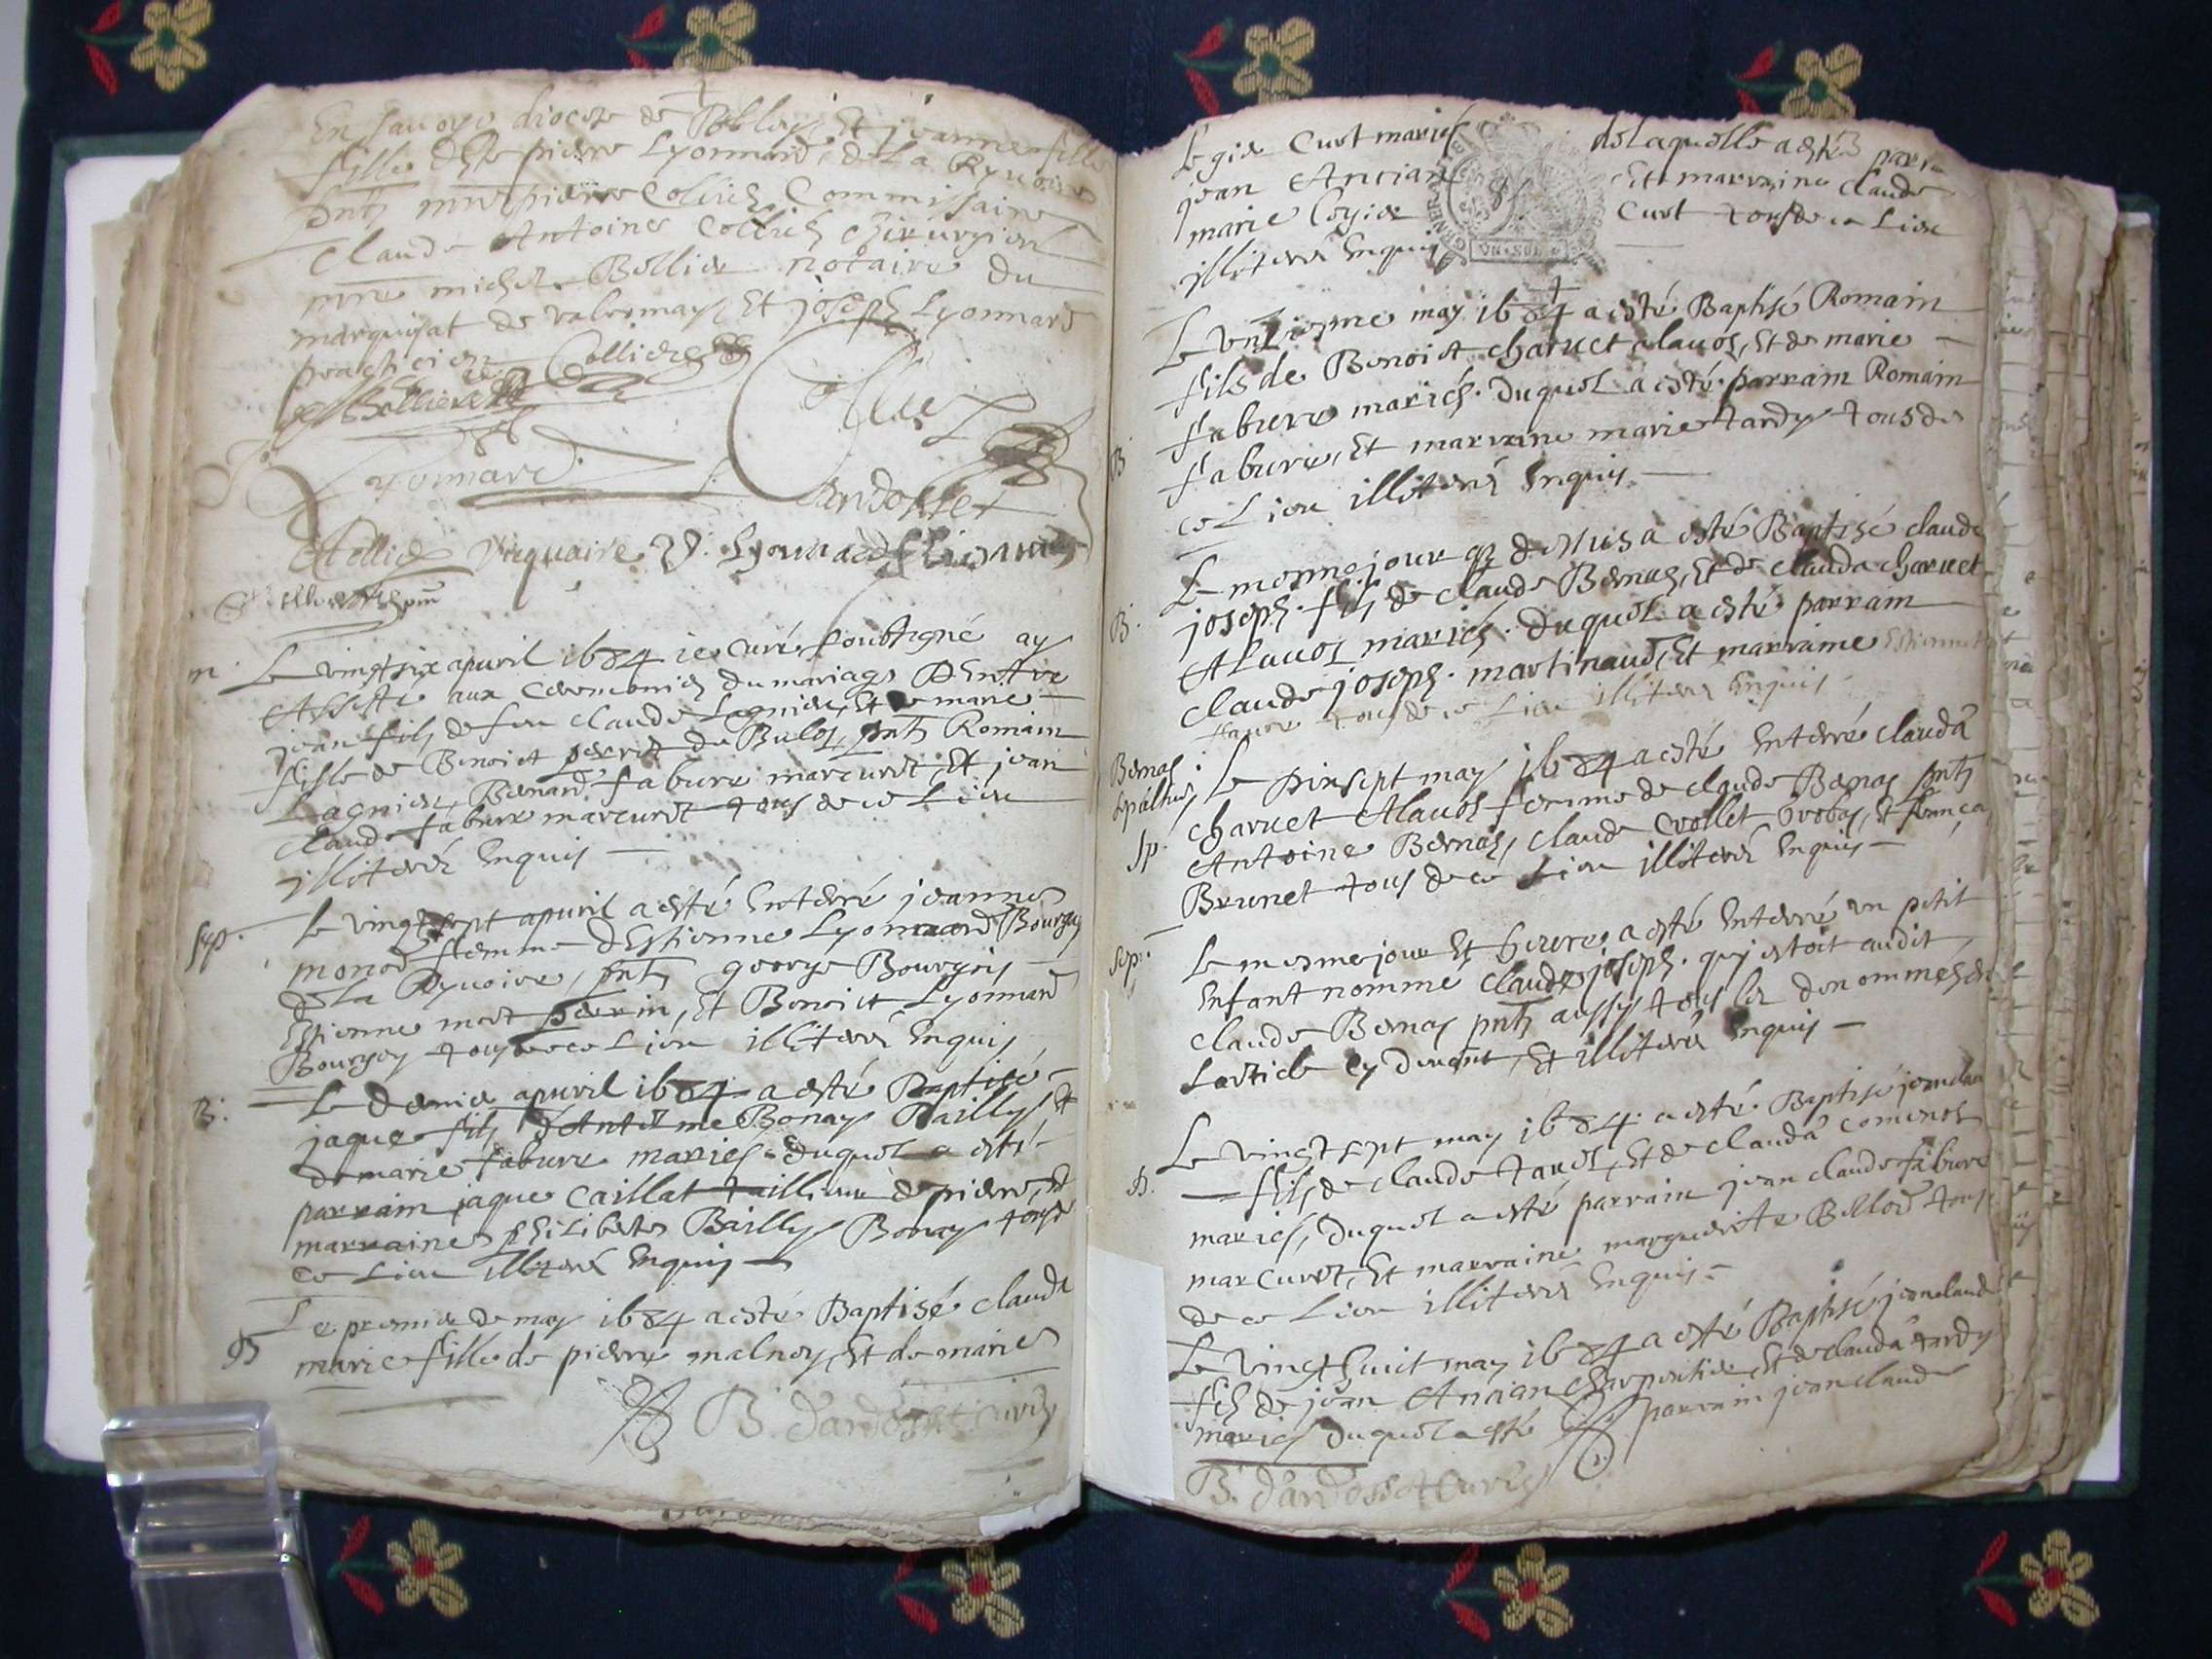 En Sauoye diocese de Belley, Et jeanne fille
fille d'Este pierre Lyonnard, de La Ryuoire
pnts mre pierre Colliex Commissaire
Claude Antoine Colliex chirurgien
mre michel Bollier notaire du
marquisat de valromay, Et joseph Lyonnard
practicien Collier
Bollier
Lyonnard
Dandosset
Viquaire Lyonnard
m. Le vingtsix apuril 1684 ie curé soubsigné ay
Assisté aux ceremonies du mariage D'Entre
jean fils de feu claude Lagnier, Et de marie
fille de Benoict perret du Bulos, pnts Romain
Lagnier, Bernard fabure marcuret, Et jean
claude fabure marcuret tous de ce Lieu
illiterés Enquis
sep. Le vingtsept apuril a esté Enterré jeanne
monod femme d'Estienne Lyonnard Bourgey
de La Ryuoire, pnts george Bourgois
Estienne mort perrin, Et Benoict Lyonnard
Bourgey tous de ce Lieu illiterés Enquis
B: Le dernier apuril 1684 a esté Baptisé
jaque fils d'Antelme Bonay Bailly, Et
de marie fabure mariés. duquel a esté
parrain jaque Caillat tailleur de pierre, Et
marraine philiberte Bailly Bonay tous de
ce Lieu illiterés Enquis
B Le premier de may 1684 a esté Baptisé clauda
marie fille de pierre malnoy, Et de marie
B. Dandosset curé
Legier Curt mariés de laquelle a esté parrain
jean Ancian Et marraine claude
marie Legier Curt tous de ce Lieu
illiterés Enquis
UN SOL
Le vnziesme may 1684 a esté Baptisé Romain
fils de Benoict charuet alauos, Et de marie
fabure mariés. duquel a esté parrain Romain
B fabure, Et marraine marie tardy tous de
ce Lieu illiterés Enquis
Le mesme jour que dessus a esté Baptisé claude
B. joseph. fils de claude Bernas, Et de clauda charuet
Alauos mariés. duquel a esté parrain
claude joseph. martinaud, Et marraine Estiennette
tous de ce Lieu illiterés Enquis
Bernas
sepultures Le dixsept may 1684 a esté Enterré clauda
sp. charuet Alauos femme de claude Bernas pnts
Antoine Bernas, claude Crollet, Et
Brunet tous de ce Lieu illiterés Enquis
sep: Le mesme jour Et heure a esté Enterré vn petit
Enfant nommé claude joseph. qui estoit audit
claude Bernas pnts aussy tous les denommés en
L'article cy deuant, Et illiterés Enquis
Le vingtsept may 1684 a esté Baptisé jeanclau
B. fils de claude tauos, Et de clauda comenos
mariés, duquel a esté parrain jean claude fabure
marcuret, Et marraine marguerite Bollod tous
de ce Lieu illiterés Enquis
Le vingthuit may 1684 a esté Baptisé jeanclaude
fils de jean Ancian charpentier, Et de clauda tardy
mariés duquel a esté parrain jean claude
B. Dandosset curé